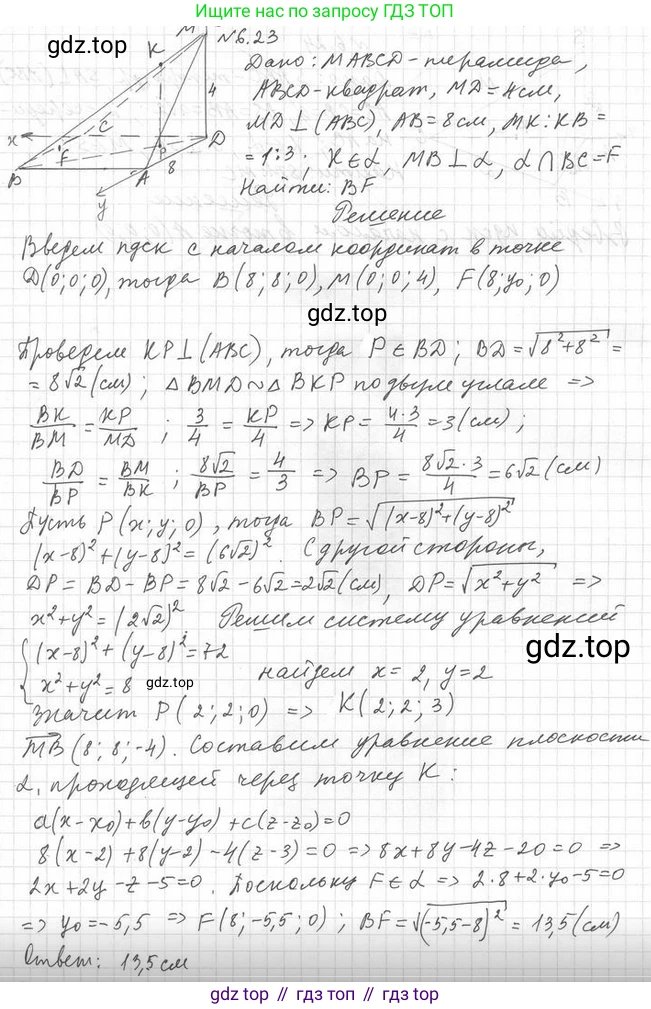 Ищите нас по запросу ГДЗ ТОП
gdz.top
№6.23
Дано: MABCD-пирамида,
ABCD-квадрат, MD=4см,
MD⊥(ABC), AB=8см, MK:KB=
=1:3; K∈α, MB⊥α, α∩BC=F
Найти: BF
M
K
4
x
C
F
P
D
B
A
8
y
Решение
Введем пдск с началом координат в точке
D(0;0;0), тогда B(8;8;0), M(0;0;4), F(8;y₀;0)
gdz.top
Проведем KP⊥(ABC), тогда P∈BD; BD=√(8²+8²)=
=8√2(см); △BMD∼△BKP по двум углам =>
BK/BM=KP/MD; 3/4=KP/4 => KP=4·3/4=3(см);
BD/BP=BM/BK; 8√2/BP=4/3 => BP=8√2·3/4=6√2(см)
Пусть P(x;y;0), тогда BP=√((x-8)²+(y-8)²)
(x-8)²+(y-8)²=(6√2)². С другой стороны,
DP=BD-BP=8√2-6√2=2√2(см), DP=√(x²+y²) =>
x²+y²=(2√2)² Решим систему уравнений
{(x-8)²+(y-8)²=72
x²+y²=8 найдем x=2, y=2
gdz.top
gdz.top
Значит P(2;2;0) => K(2;2;3)
MB(8;8;-4). Составим уравнение плоскости
α, проходящей через точку K:
a(x-x₀)+b(y-y₀)+c(z-z₀)=0
8(x-2)+8(y-2)-4(z-3)=0 => 8x+8y-4z-20=0 =>
2x+2y-z-5=0. Поскольку F∈α => 2·8+2·y₀-5=0
=> y₀=-5,5 => F(8;-5,5;0); BF=√(-5,5-8)²=13,5(см)
Ответ: 13,5см
gdz.top // gdz.top // gdz.top